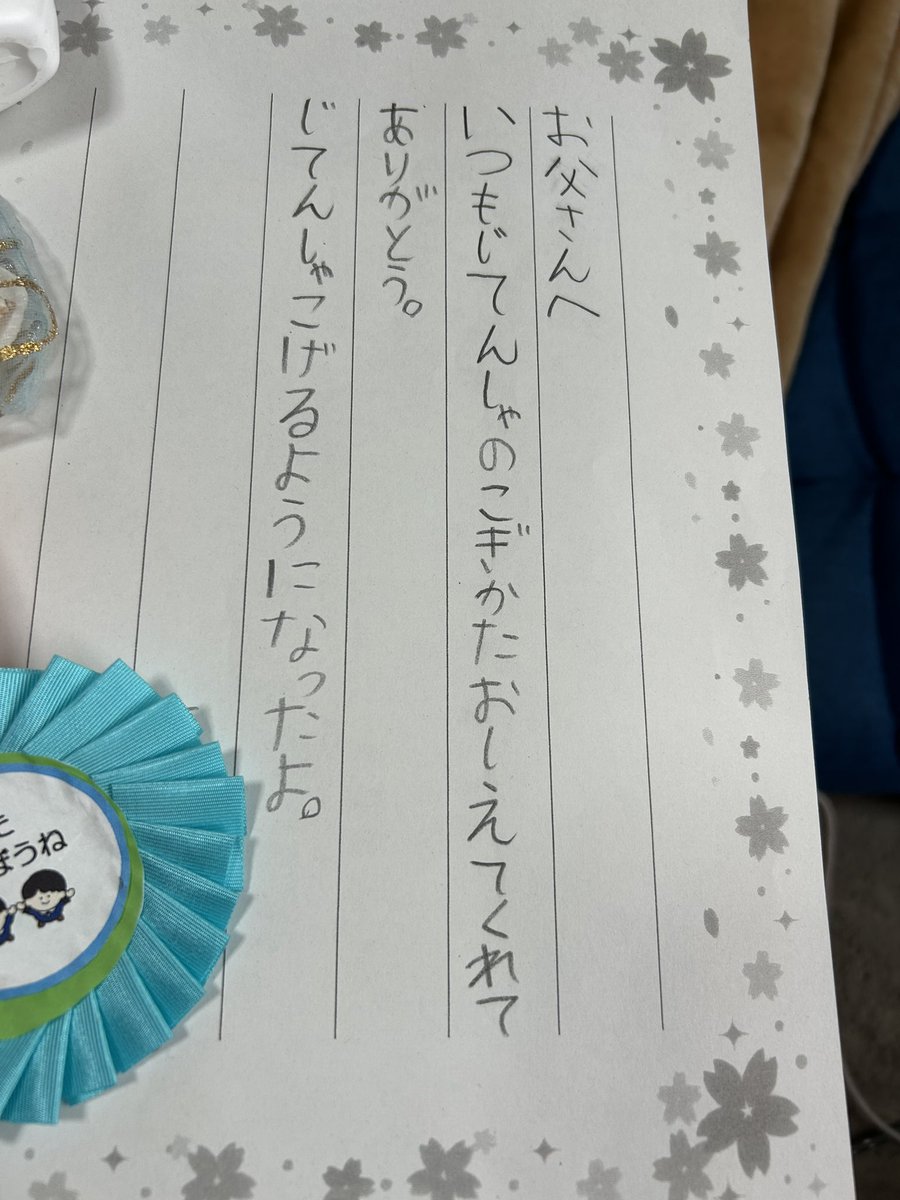 お父さんへ
いつもじてんしゃのこぎかたおしえてくれて
ありがとう。
じてんしゃこげるようになったよ。
うね